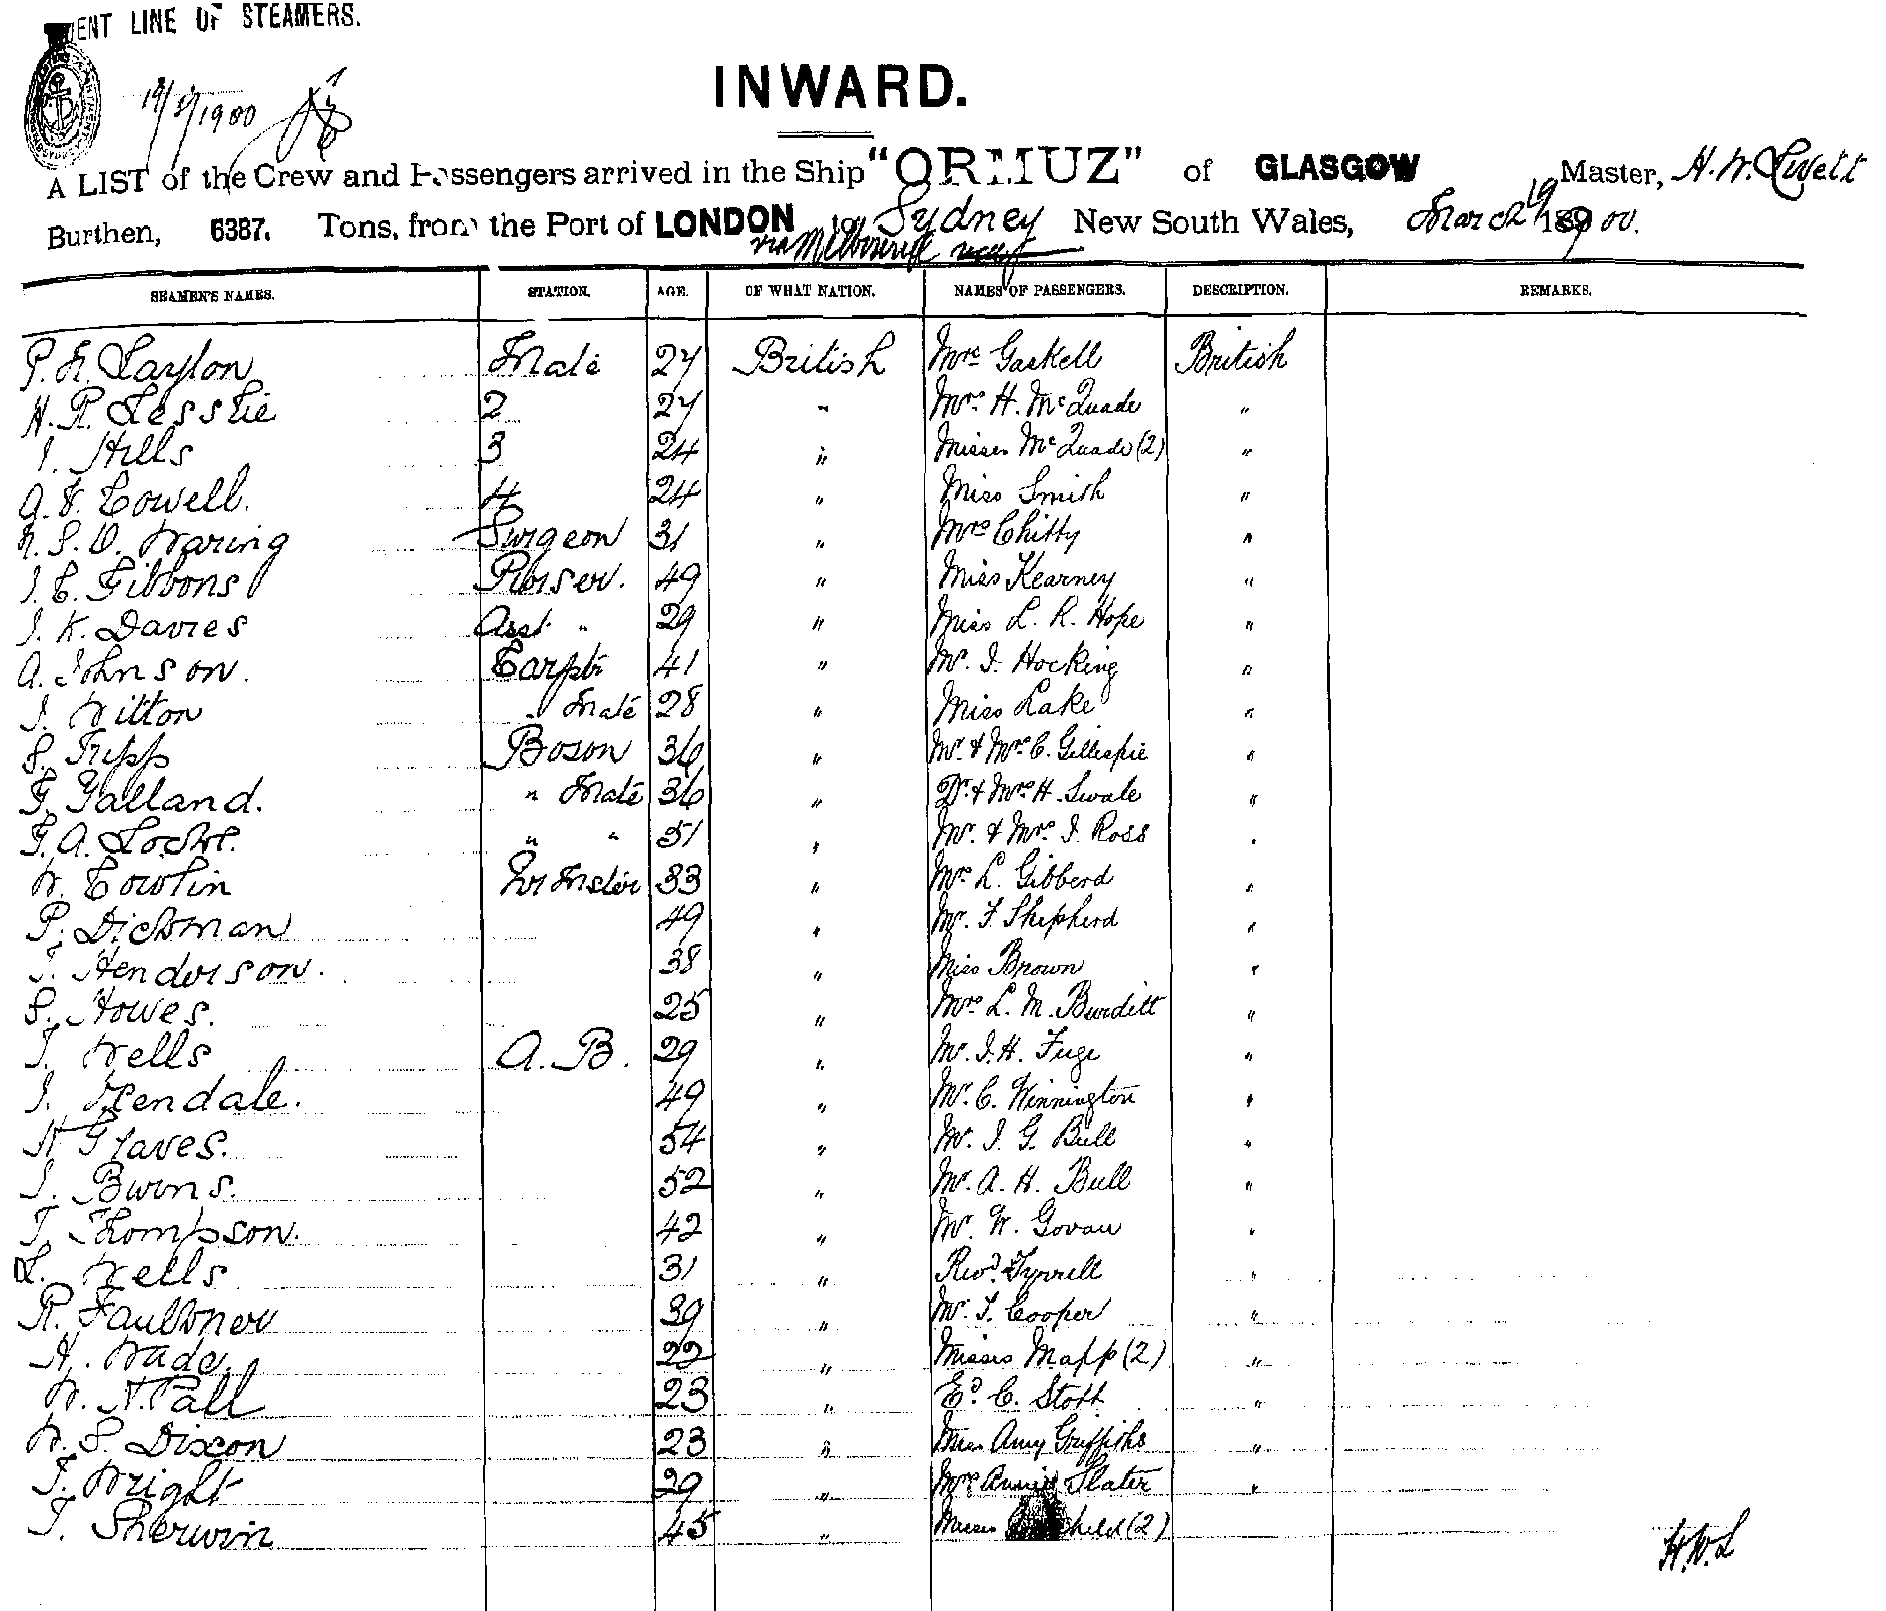 ENT LINE OF STEAMERS.
19/3/1900
INWARD.
A LIST of the Crew and Passengers arrived in the Ship "ORMUZ" of GLASGOW Master, H. W.
Burthen, 6387. Tons, from the Port of LONDON to Sydney New South Wales, March 19 1900.
via Melbourne
SEAMEN'S NAMES. STATION. AGE. OF WHAT NATION. NAMES OF PASSENGERS. DESCRIPTION. REMARKS.
P. N. Layton Mate 27 British Mrs Gaskell British
H. R. Lesslie 2 27 " Mrs. H. McQuade "
J. Hills 3 24 " Misses McQuade (2) "
A. V. Cowell. 4 24 " Miss Smith "
N. S. O. Waring Surgeon 31 " Mrs Chitty "
J. C. Gibbons Purser. 49 " Miss Kearney "
J. K. Davies Asst " 29 " Miss L. R. Hope "
A. Johnson. Carptr 41 " Mr. J. Hocking "
J. Witton " Mate 28 " Miss Lake "
S. Tripp Boson 36 " Mr. & Mrs. C. Gillespie "
G. Galland. " Mate 36 " Dr. & Mrs H. Swale "
G. A. Locke. " " 51 " Mr. & Mrs. J. Ross "
W. Cowlin Qr Master 33 " Mrs L. Gibberd "
P. Dickman 49 " Mr. F. Shepherd "
J. Henderson. 38 " Miss Brown "
S. Howes. 25 " Mrs L. M. Burditt "
T. Wells A. B. 29 " Mr. J. H. Fuge "
J. Hendale. 49 " Mr. C. Winnington "
H Graves. 54 " Mr. J. G. Bull "
J. Burns. 52 " Mr. A. H. Bull "
T. Thompson. 42 " Mr. W. Govan "
L. Wells 31 " Revd. Tyrrell "
R. Faulkner 39 " Mr. T. Cooper "
H. Wade. 22 " Misses Mapp (2) "
W. N. Pall 23 " Ed. C. Stott "
W. S. Dixon 23 " Miss Amy Griffiths "
T. Wright 29 " Mrs Annie Slater "
T. Sherwin 45 " Misses child (2)
H. W. L